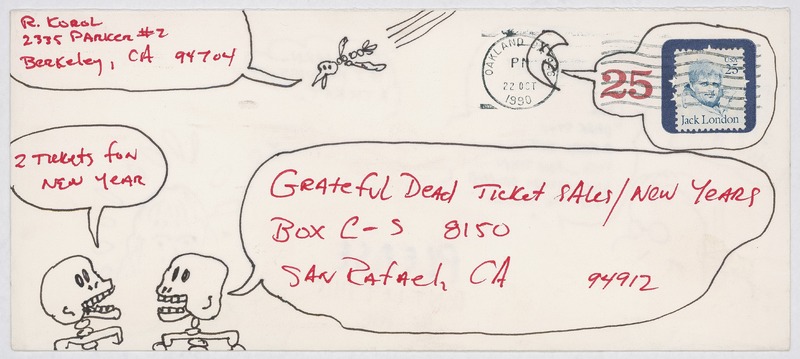 R. KOROL
2335 PARKER #2
Berkeley, CA 94704
OAKLAND
PM
22 OCT
1990
25
USA
25
Jack London
2 Tickets for
NEW YEAR
GRATEFUL DEAD TICKET SALES/NEW YEARS
BOX C-S 8150
SAN RAFAEL, CA 94912